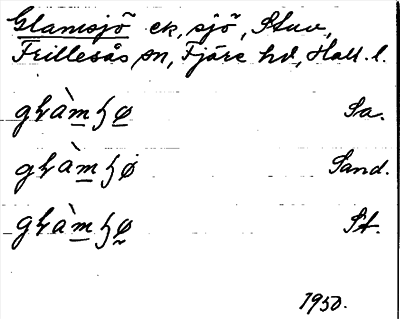 Glamsjö ek, sjö, Stuv,
Frillesås sn, Fjäre hd, Hall. l.
glàmʂø Sa.
glàmʂø Sand.
glàmʂø St.
1950.